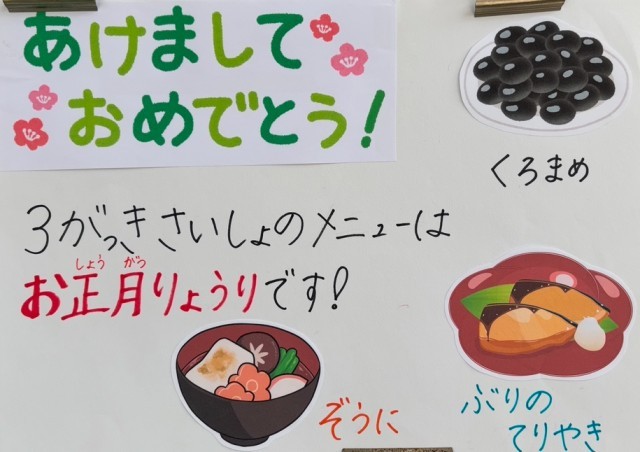 あけまして
おめでとう！
くろまめ
3がっきさいしょのメニューは
お正月りょうりです！
しょう がつ
ぞうに
ぶりの
てりやき